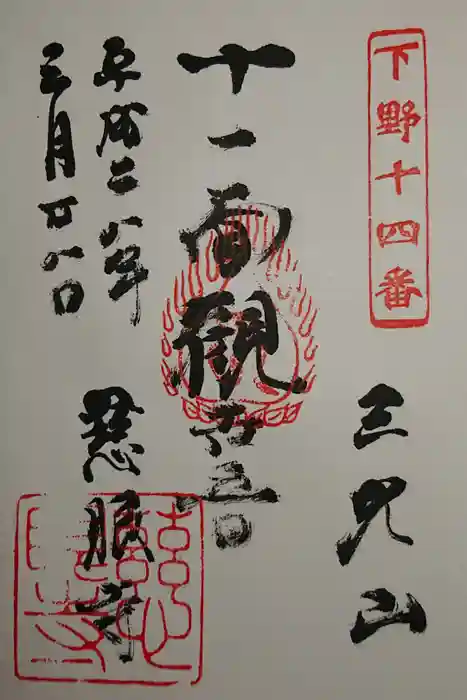 下野十四番
三光山
十一面観世音
平成二八年
三月廿八日
慈眼寺